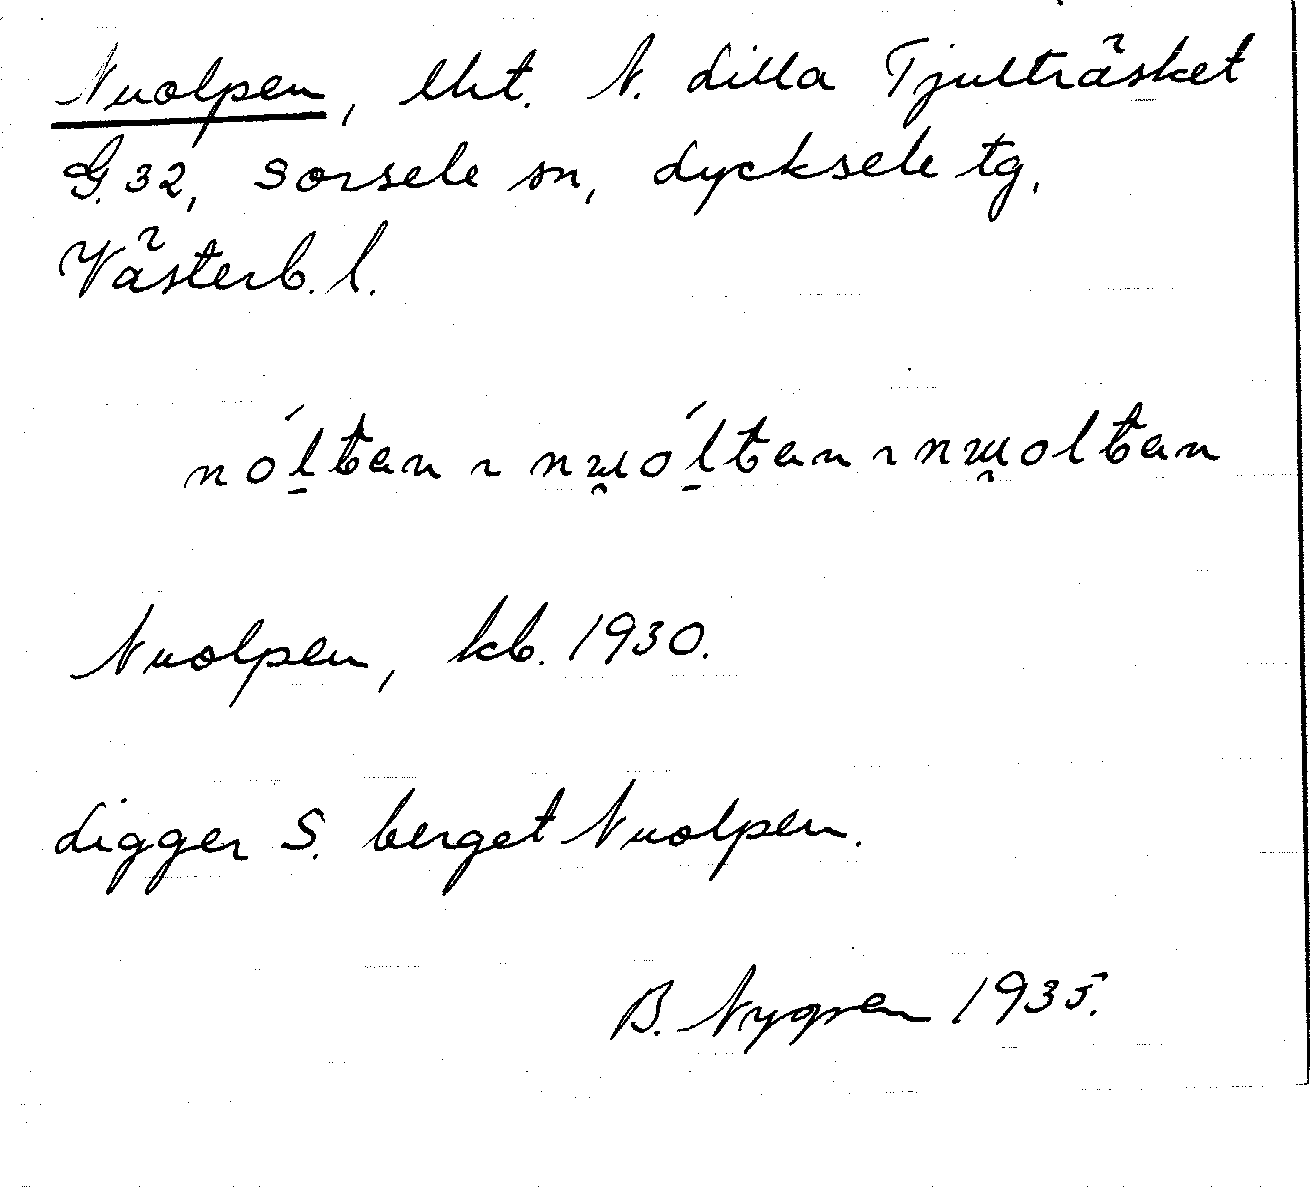 Nuolpen, lht. N. Lilla Tjulträsket
G.32, Sorsele sn, Lycksele tg,
Västerb. l.
nól̠tan ~ nu̯ól̠tan ~ nu̯oltan
Nuolpen, kb. 1930.
Ligger S. berget Nuolpen.
B. Nygren 1935.